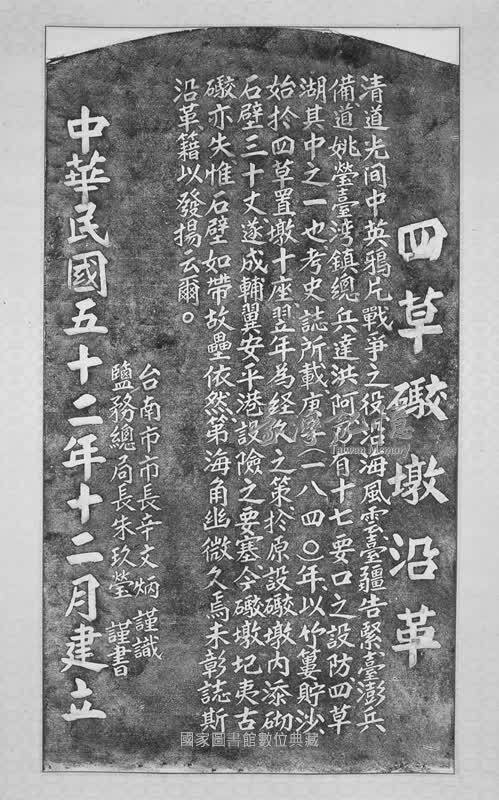 四草礮墩沿革
清道光间中英鴉片戰爭之役沿海風雲臺疆告緊臺澎兵
備道姚瑩臺湾鎮總兵達洪阿乃有十七要口之設防四草
湖其中之一也考史誌所載庚子(一八四〇)年以竹簍貯沙
始於四草置墩十座翌年為経久之策於原設礮墩内添砌
石壁三十丈遂成輔翼安平港設險之要塞今礮墩圮夷古
礮亦失惟石壁如帶故壘依然第海角幽微久焉未彰誌斯
沿革籍以發揚云爾。
台南市市長辛文炳 謹識
鹽務總局長朱玖瑩 謹書
中華民國五十二年十二月建立
國家圖書館數位典藏
Taiwan Memory